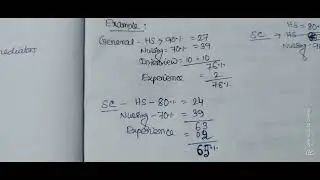 Example :
General - HS → 90% = 27
Nursing - 70% = 39
Interview = 10 = 10
76%
Experience = 2
78%
SC - HS - 80% = 24
Nursing - 70% = 39
63
Experience = 02
65%
SC → HS = 80
HS -
Nursing - 70